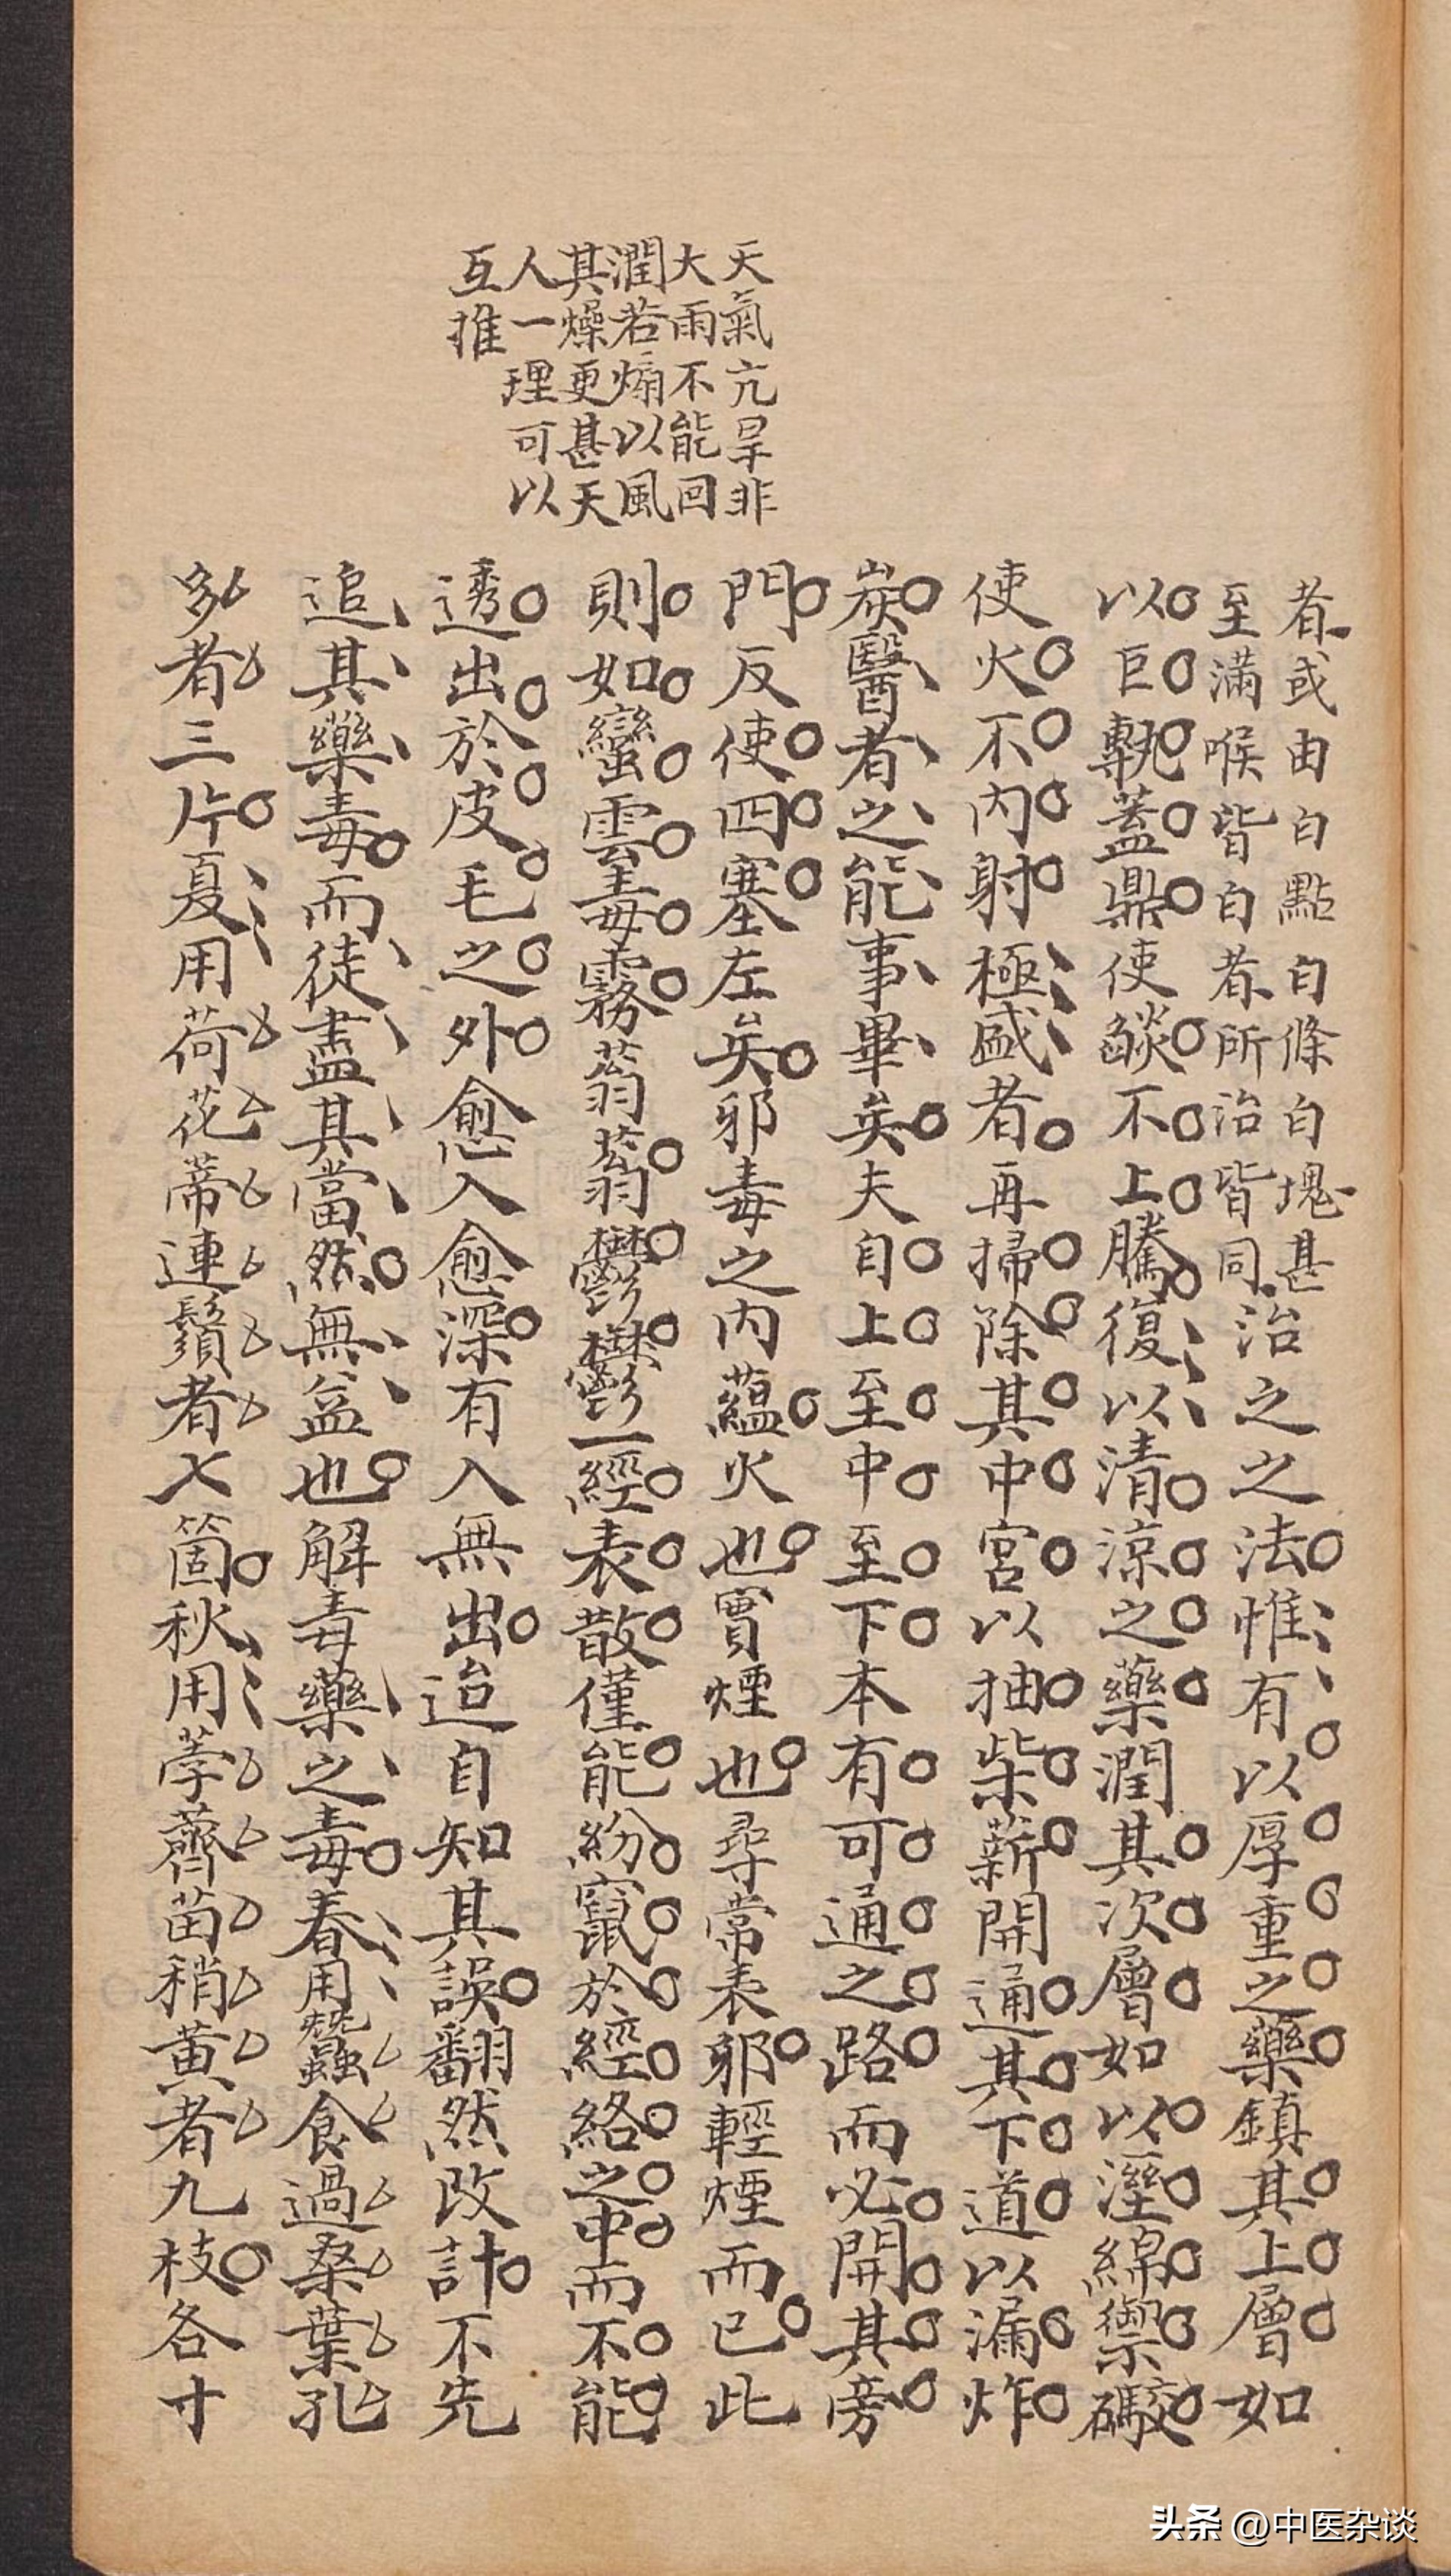 天氣亢旱非
大雨不能回
潤若煽以風
其燥更甚天
人一理可以
互推
者或由白點白條白塊甚
至滿喉皆白者所治皆同
治之之法惟有以厚重之藥鎮其上層如
以巨 蓋鼎使燄不上騰復以清涼之藥潤其次層如以溼綿禦礮
使火不內射極盛者再掃除其中宮以抽柴薪開通其下道以漏炸
炭醫者之能事畢矣夫自上至中至下本有可通之路而必開其旁
門反使四塞左矣邪毒之內蘊火也實煙也尋常表邪輕煙而已此
則如蠻雲毒霧蓊蓊鬱鬱一經表散僅能紛竄於經絡之中而不能
透出於皮毛之外愈入愈深有入無出迨自知其誤翻然改計不先
追其藥毒而徒盡其當然無益也解毒藥之毒春用蠶食過桑葉孔
多者三片夏用荷花蒂連鬚者七箇秋用荸薺苗稍黃者九枝各寸
头条 @中医杂谈